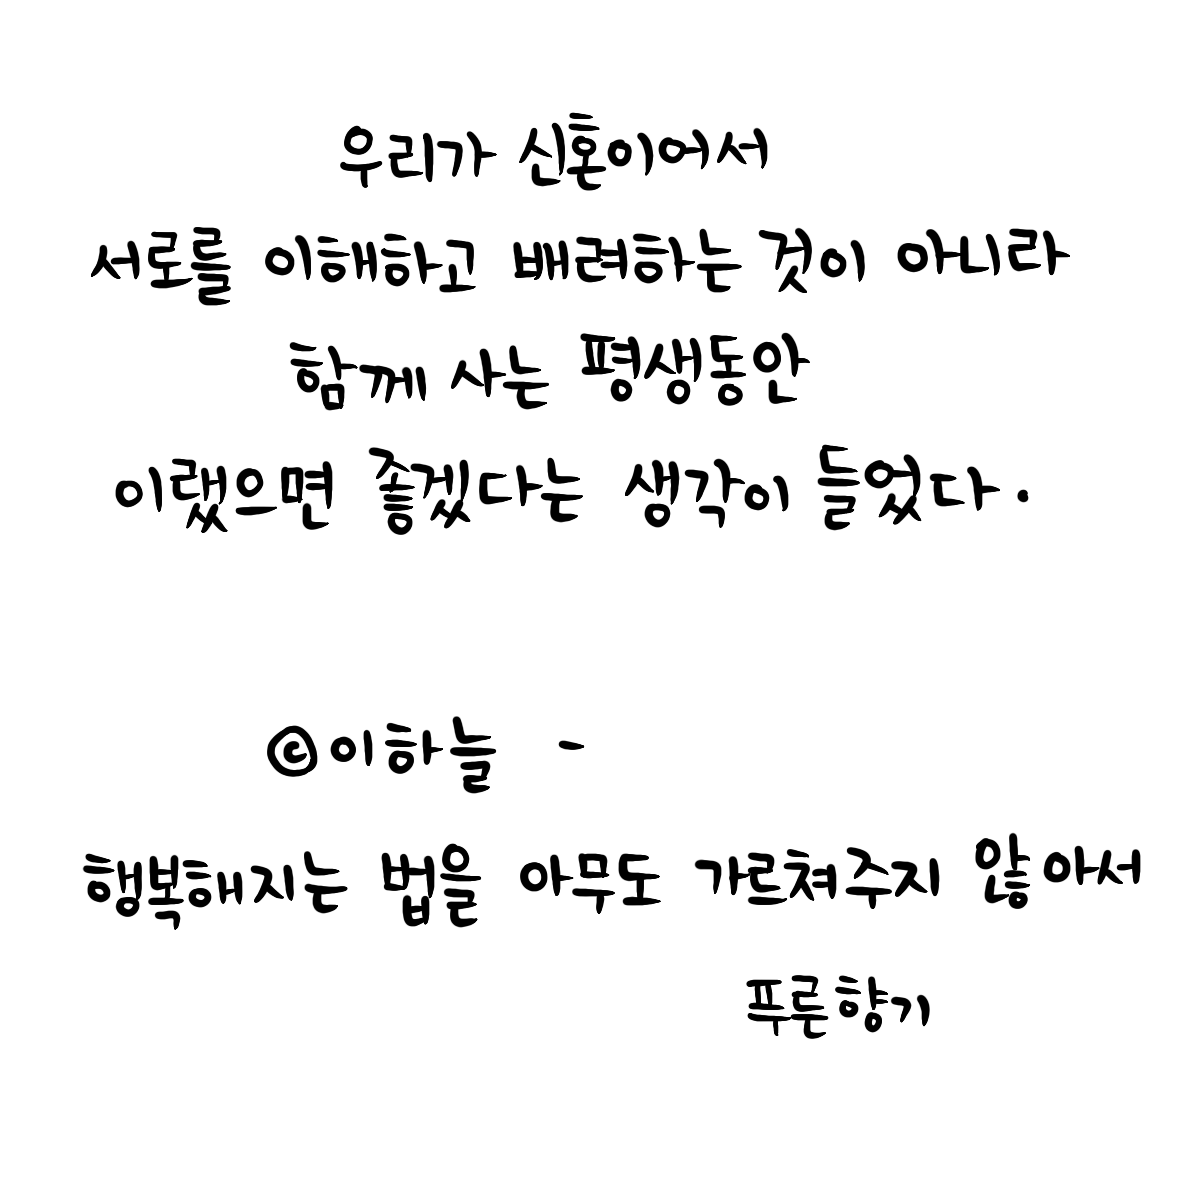 우리가 신혼이어서
서로를 이해하고 배려하는 것이 아니라
함께 사는 평생동안
이랬으면 좋겠다는 생각이 들었다.
©이하늘 -
행복해지는 법을 아무도 가르쳐주지 않아서
푸른향기